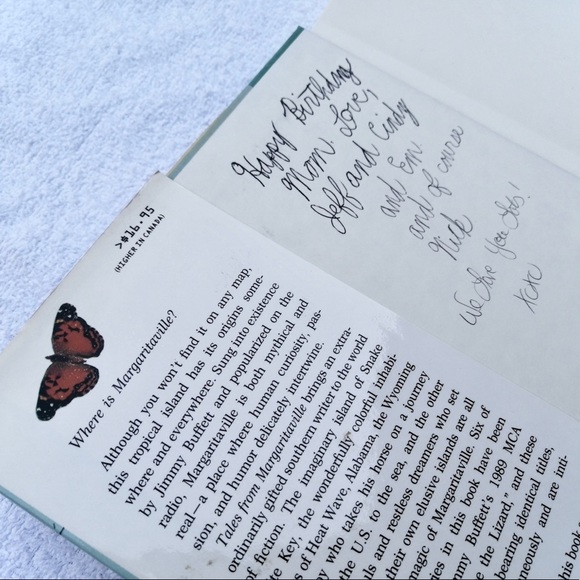 Happy Birthday
Mom. Love,
Jeff and Cindy
and Em
and of course
Nick
We Love You Lots!
xoxo
>$16.95
(HIGHER IN CANADA)
Where is Margaritaville?
Although you won't find it on any map,
this tropical island has its origins some-
where and everywhere. Sung into existence
by Jimmy Buffett and popularized on the
radio, Margaritaville is both mythical and
real—a place where human curiosity, pas-
sion, and humor delicately intertwine.
Tales from Margaritaville brings an extra-
ordinarily gifted southern writer to the world
of fiction. The imaginary island of Snake
te Key, the wonderfully colorful inhabi-
s of Heat Wave, Alabama, the Wyoming
y who takes his horse on a journey
the U.S. to the sea, and the other
ls and restless dreamers who set
their own elusive islands are all
magic of Margaritaville. Six of
es in this book have been
my Buffett's 1989 MCA
e the Lizard," and these
bearing identical titles,
neously and are inti-
this book